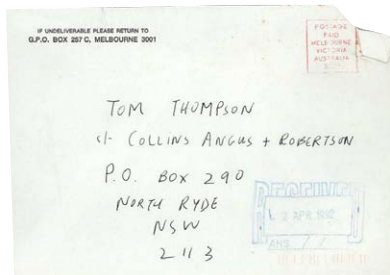 IF UNDELIVERABLE PLEASE RETURN TO
G.P.O. BOX 257 C, MELBOURNE 3001
POSTAGE
PAID
MELBOURNE
VICTORIA
AUSTRALIA
TOM THOMPSON
c/- COLLINS ANGUS + ROBERTSON
P.O. BOX 290
NORTH RYDE
NSW
2113
RECEIVED
APR 1992
ANS